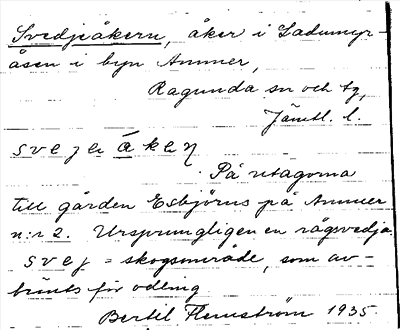 Svedjeåkern, åker i Ladumyr-
åsen i byn Ammer,
Ragunda sn och tg,
Jämtl. l.
svejeåkeꞃ
På utägorna
till gården Esbjörns på Ammer
n:r 2. Ursprungligen en rågsvedja.
svej = skogsområde, som av-
bränts för odling
Bertil Flemström 1935.